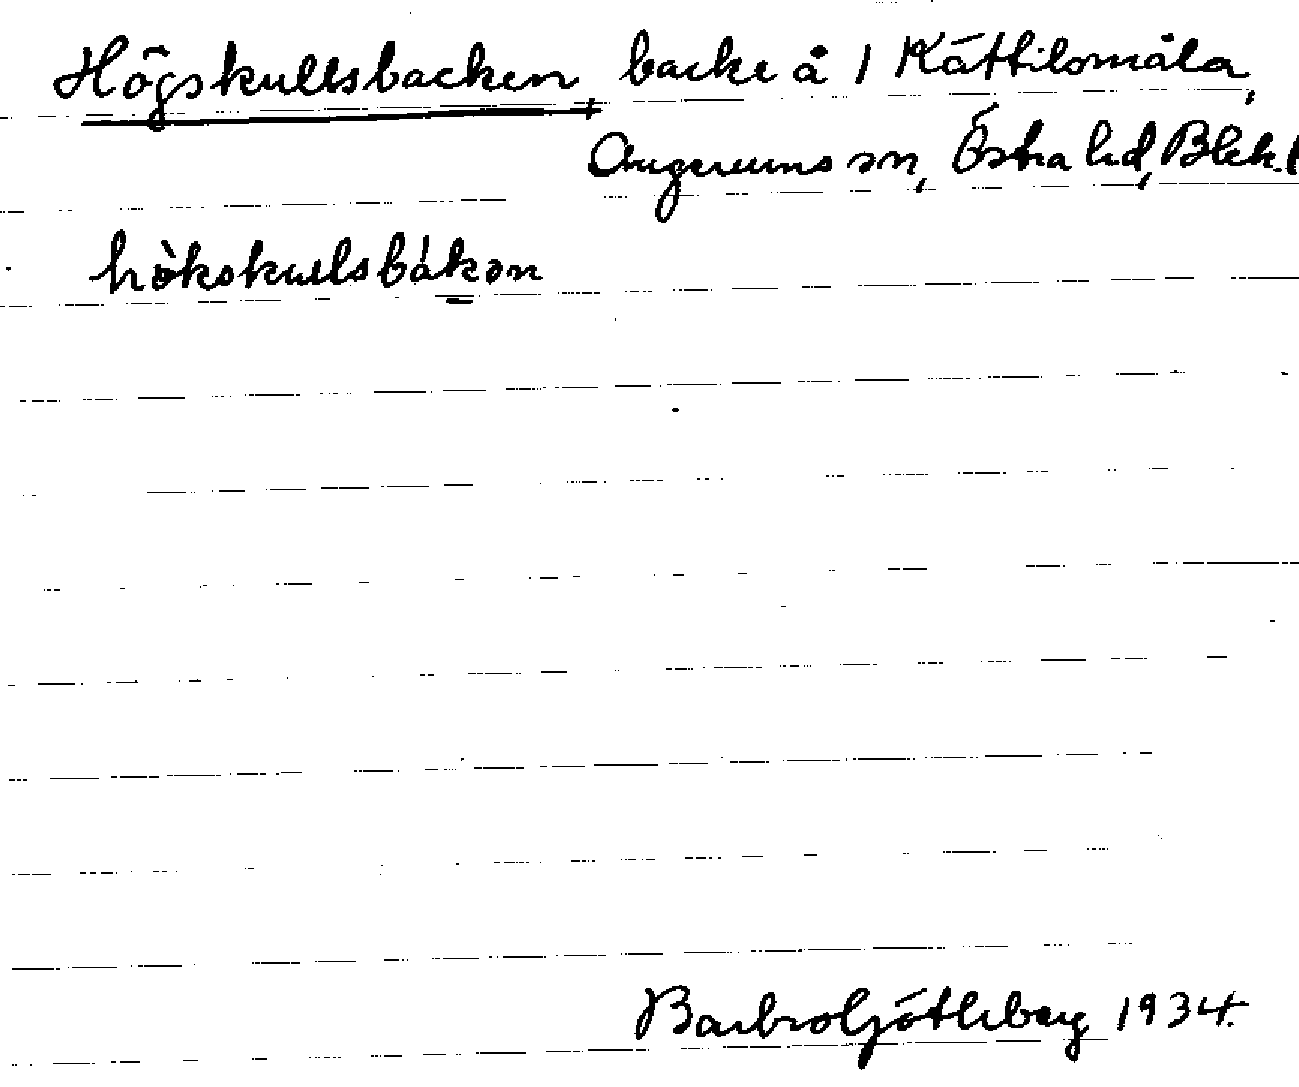 Högskullsbacken, backe å 1 Kättilsmåla,
Augerums sn, Östra hd, Blek.
hökskullsbákən
Barbro Götheberg 1934.